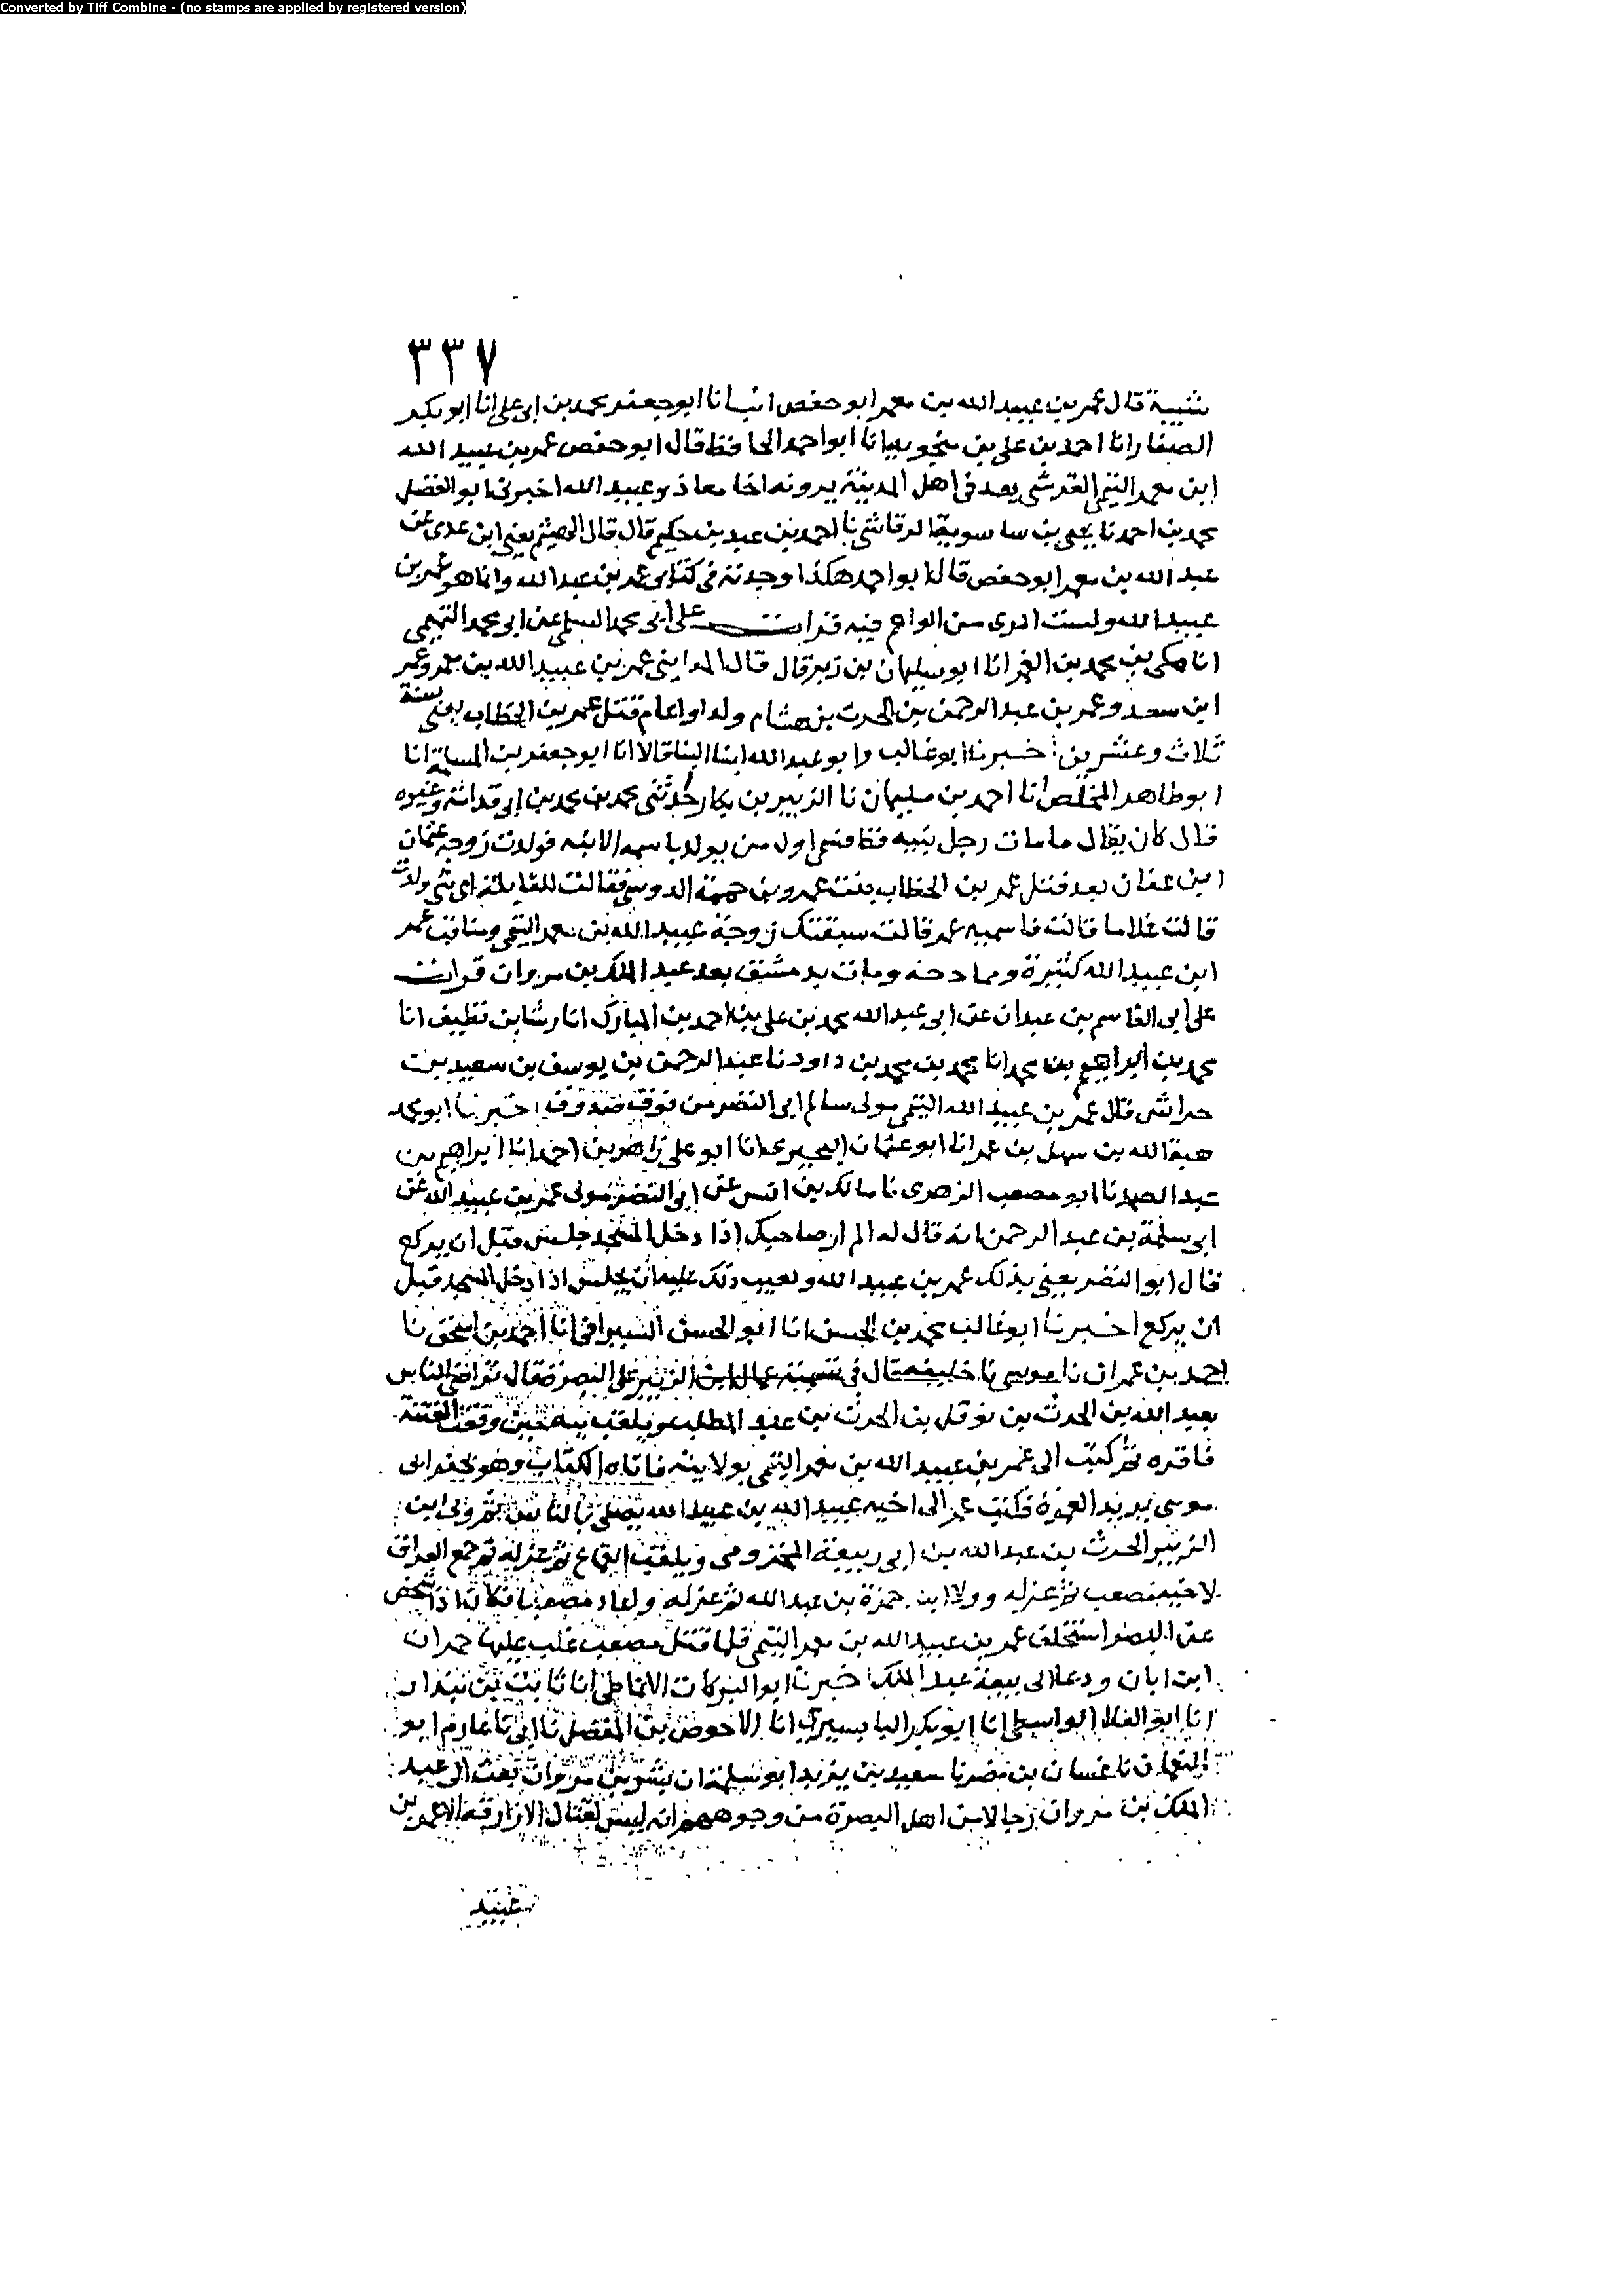 Converted by Tiff Combine - (no stamps are applied by registered version)
٣٣٧
شيبة قال عمر بن عبيد الله بن معمر ابو حفص انبانا ابو جعفر محمد بن ابى على انا ابو بكر
الصفار انا احمد بن على بن منجويه انا ابو احمد الحافظ قال ابو حفص عمر بن عبيد الله
ابن معمر التيمى القرشى يعد فى اهل المدينة يرونه اخا معاذ وعبيد الله اخبرنى ابو الفضل
محمد بن احمد نا يحيى بن ساسويه الرقاشى نا احمد بن عبد بن حكيم قال قال الهيثم يعنى ابن عدى عن
عبد الله بن معمر ابو حفص قال ابو احمد هكذا وجدته فى كتابى عمر بن عبد الله وانما هو عمر بن
عبيد الله ولست ادرى من الواهم فيه قرات على ابى محمد السلمى عن ابى محمد التميمى
انا مكى بن محمد بن الغمر انا ابو سليمان بن زبر قال قال المداينى عمر بن عبيد الله بن معمر وعمر
ابن سعد وعمر بن عبد الرحمن بن الحرث بن هشام ولدوا عام قتل عمر بن الخطاب يعنى سنة
ثلاث وعشرين اخبرنا ابو غالب وابو عبد الله ابنا البنا قالا انا ابو جعفر بن المسلمة انا
ابو طاهر المخلص انا احمد بن سليمان نا الزبير بن بكار حدثنى محمد بن محمد بن ابى قدامة وغيره
قال كان يقال ما مات رجل نبيه قط فسمى اول من يولد باسمه الا نبه فولدت زوجة عثمان
ابن عفان بعد قتل عمر بن الخطاب بنت عمرو بن حممة الدوسى فقالت للقابلة اى شى ولدت
قالت غلاما قالت فاسميه عمر قالت سبقتك زوجة عبيد الله بن معمر التيمى ومناقب عمر
ابن عبيد الله كثيرة وممادحه ومات بدمشق بعد عبد الملك بن مروان قرات
على ابى القاسم بن عبدان عن ابى عبد الله محمد بن على بن احمد بن المبارك انا رشا بن نظيف انا
محمد بن ابراهيم بن محمد انا محمد بن محمد بن داود نا عبد الرحمن بن يوسف بن سعيد بن
حراش قال عمر بن عبيد الله التيمى مولى سالم ابى النضر من فوق صدوق اخبرنا ابو محمد
هبة الله بن سهل بن عمر انا ابو عثمان البحيرى انا ابو على زاهر بن احمد انا ابراهيم بن
عبد الصمد نا ابو مصعب الزهرى نا مالك بن انس عن ابى النضر مولى عمر بن عبيد الله عن
ابى سلمة بن عبد الرحمن انه قال له الم ار صاحبك اذا دخل المسجد جلس قبل ان يركع
قال ابو النضر يعنى بذلك عمر بن عبيد الله ويعيب ذلك عليه ان يجلس اذا دخل المسجد قبل
ان يركع اخبرنا ابو غالب محمد بن الحسن انا ابو الحسن السيرافى انا احمد بن اسحق نا
احمد بن عمران نا موسى نا خليفة قال فى تسمية عمال ابن الزبير على البصرة قال تراضى الناس
بعبد الله بن الحرث بن نوفل بن الحرث بن عبد المطلب ويلقب ببه حين وقعت الفتنة
فاقره ثم كتب الى عمر بن عبيد الله بن معمر التيمى بولايته فاتاه الكتاب وهو بحفر ابى
موسى يريد العمرة فكتب عمر الى اخيه عبيد الله بن عبيد الله يصلى بالناس ثم ولى ابن
الزبير الحرث بن عبد الله بن ابى ربيعة المخزومى ويلقب القباع ثم عزله ثم جمع العراق
لاخيه مصعب ثم عزله وولا ابنه حمزة بن عبد الله ثم عزله واعاد مصعبا فكان اذا شخص
عن البصرة استخلف عمر بن عبيد الله بن معمر التيمى فلما قتل مصعب غلب عليها حمران
ابن ابان ودعا الى بيعة عبد الملك اخبرنا ابو البركات الانماطى انا ثابت بن بندار
انا ابو العلا الواسطى انا ابو بكر البابسيرى انا الاحوص بن المفضل نا ابى نا عارم ابو
النعمان نا غسان بن مضر نا سعيد بن يزيد ابو سلمة ان بشر بن مروان بعث الى عبد
الملك بن مروان رجالا من اهل البصرة من وجوههم انه ليس لقتال الازارقة الا عمر بن
عبيد